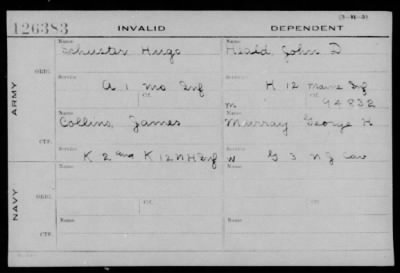 126383 INVALID DEPENDENT (3-V-3)
Name: Name:
Schuster Hugo Heald, John D
ORIG.
Service: Service:
A 1 Mo Inf K 12 Maine Inf
Ctf. Ctf.
M 94832
ARMY
Name: Name:
Collins, James Murray George H
CTF.
Service: Service:
K 2 and K 12 N H Inf W G 3 N J Cav
Name: Name:
ORIG.
Service: Service:
Ctf. Ctf.
NAVY
Name: Name:
CTF.
Service: Service: